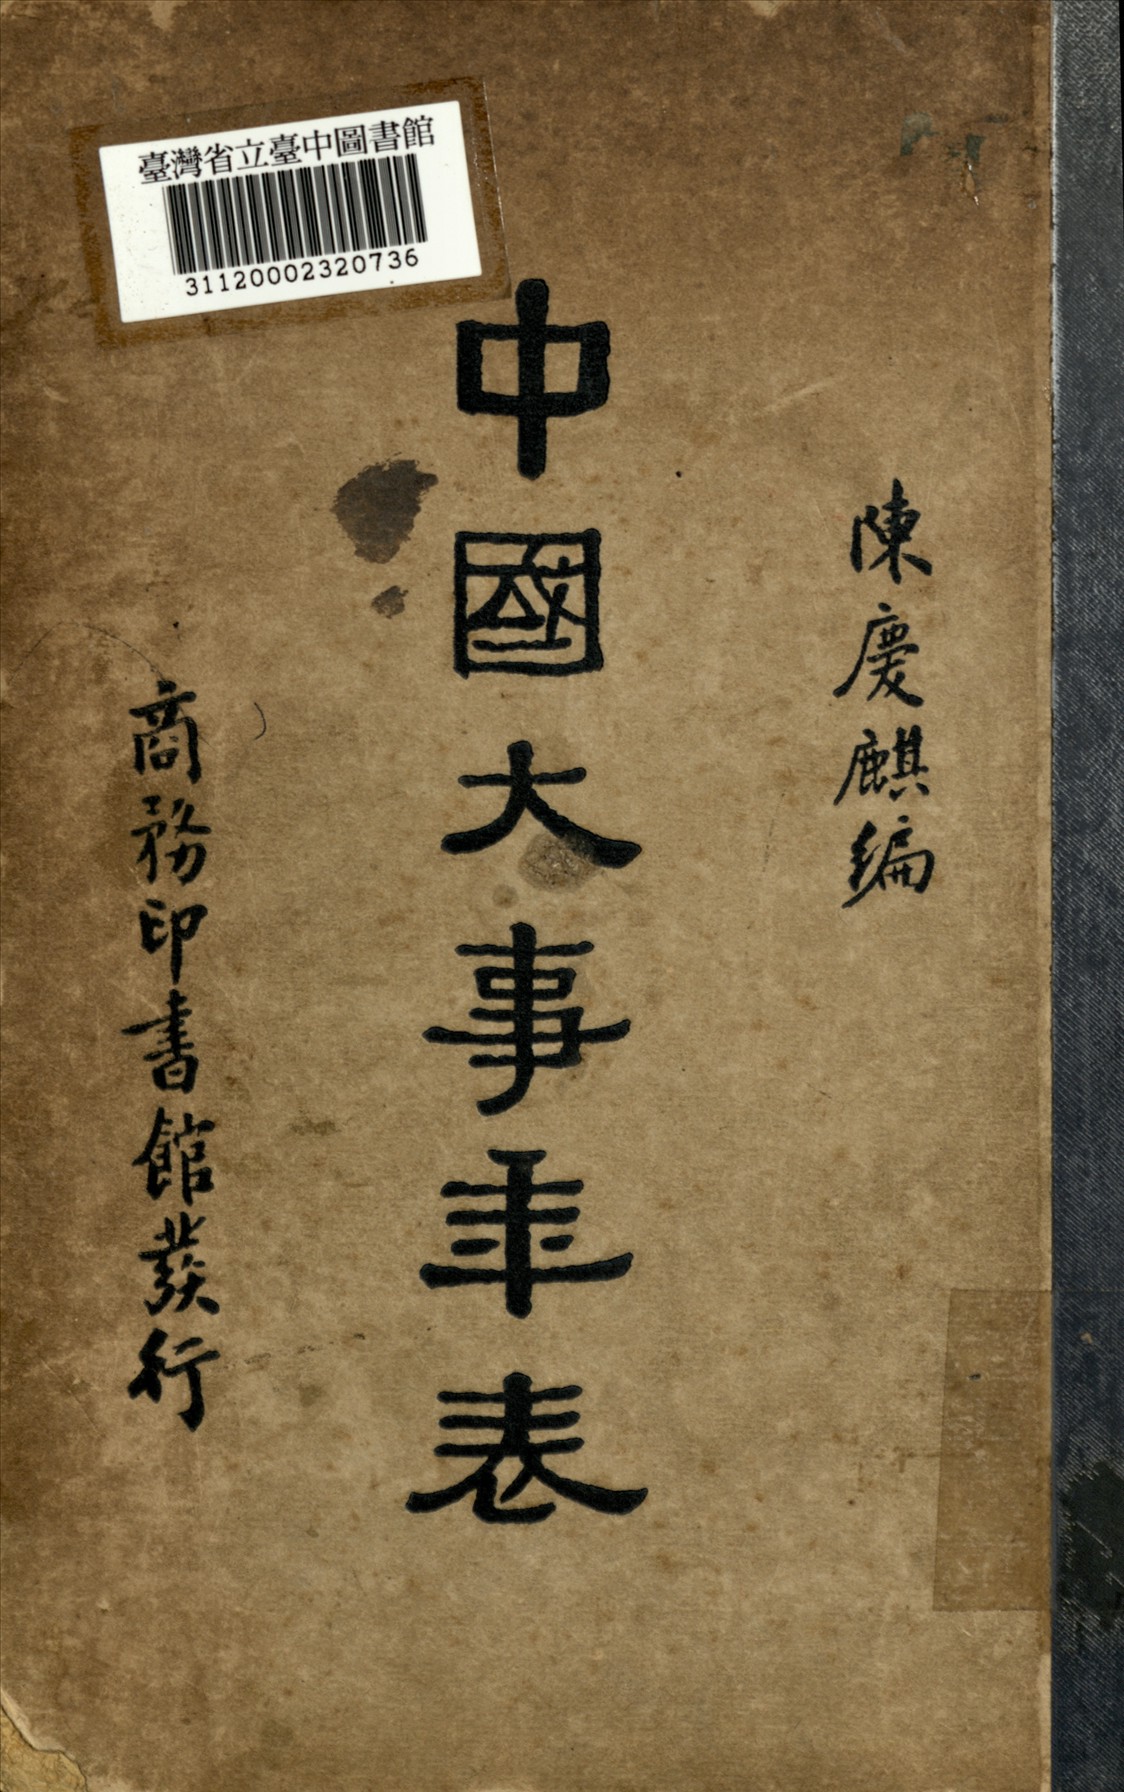 臺灣省立臺中圖書館
31120002320736
陳慶麒編
中國大事年表
商務印書館發行